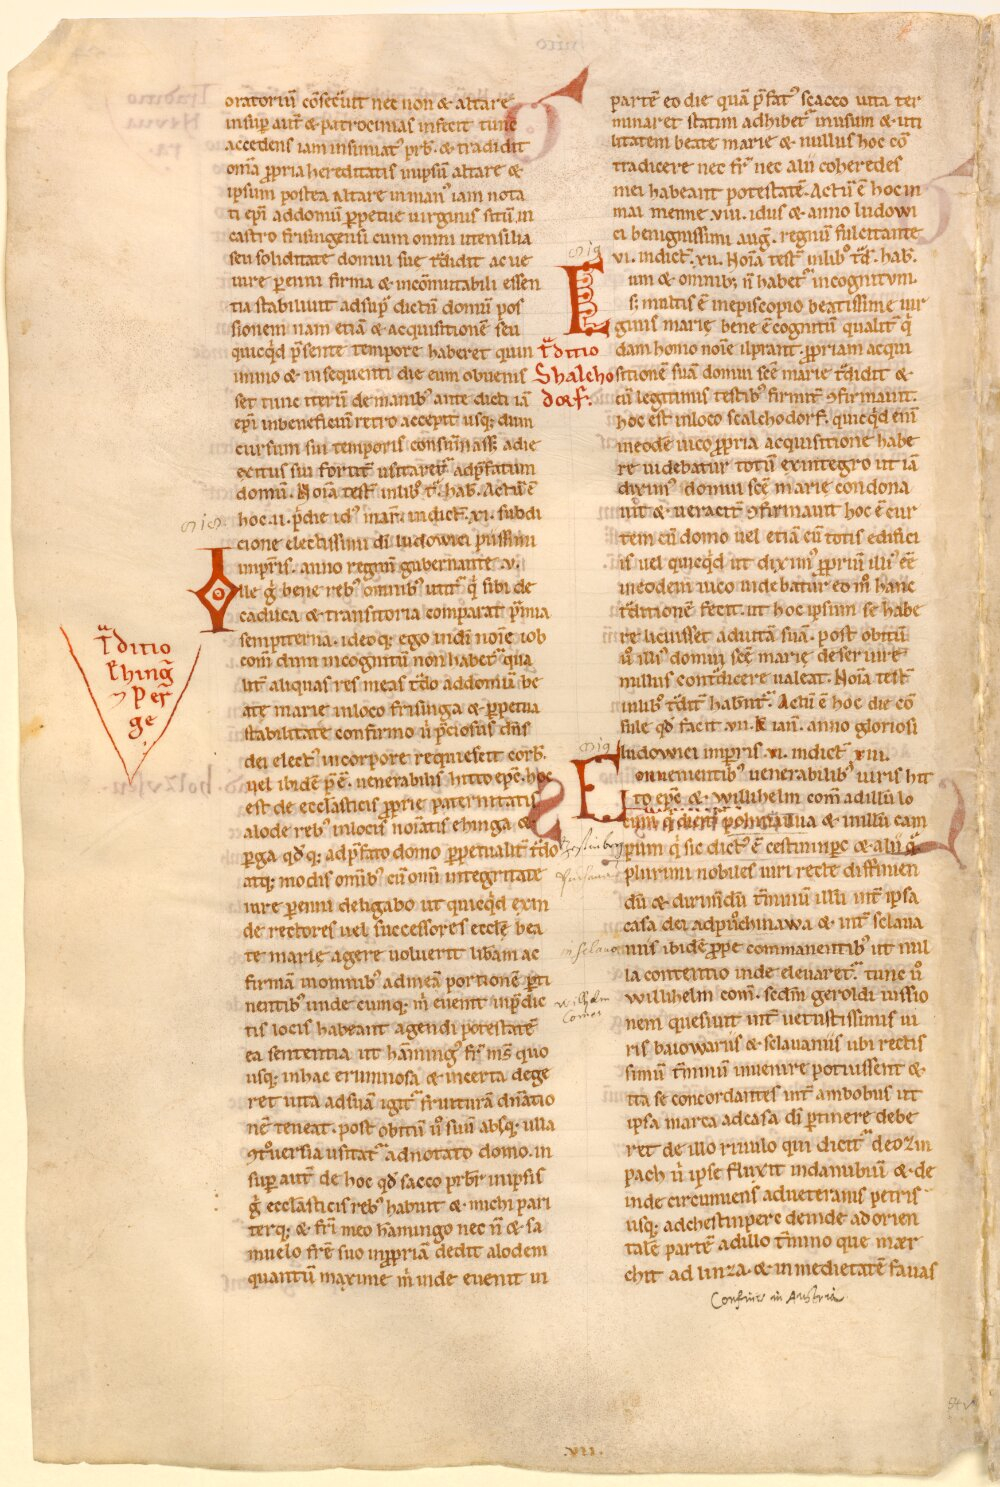 oratoriū cōsec̄uit nec non & altare
insup̄ aut̄ & patrocinias inficit tunc
accedens iam insinuat᾽ prb̄. & tradidit
om̄a ꝓpria hereditatis in ipsū altare &
ipsum postea altare in man᾽ iam nota
ti ep̄i ad domū ꝑpetue uirginis sitū. in
castro frisingensi cum omni utensilia
seu soliditate domui suę tͣdidit ac ue
iure ꝑenni firma & incōmutabili essen
tia stabiliuit ad sup̄ dictū domū pos
sionem nam etiā & acquisitionē seu
quicq̇d p̄sente tempore haberet quin
immo & in sequenti die eum obuenis
set tunc iterū de manib᾽ ante dicti iā
ep̄i in beneficiū retro accepit usq; dum
cursum sui temporis consūmass& adie
domū. Noīa test̄ in lib᾽ tͣ. hab̄. Actū ē
hoc .ii. p̄die id᾽ mar̄. indict̄. xi. subdi
cione electissimi dī ludowici piissimi
imp̄ris. anno regnū gubernante .v.
Ille ḡ bene reb᾽ omnib᾽ utit᾽ q̇ sibi de
caduca & transitoria comparat p̄mia
sempiterna. ideoq; ego in dī noīe iob
com̄ dum incognitū non habet᾽ qua
lit̄ aliquas res meas tͣdo ad domū be
atę marie in loco frisinga & ꝑpetua
stabilitate confirmo ū p̄ciosus dn̄s
dei elect᾽ in corpore requiescit corb̄.
uel ibidē p̄ē. uenerabilis hitto epē. hoc
est de ecclasticis ꝓprię paternitatis
alode reb᾽ in locis noīatis ehinga &
ꝑga qd̄ q; ad p̄fato domo ꝑpetualit̄ tͣdo
atq; modis om̄ib᾽ cū om̄i integritate
iure ꝑenni deligabo ut quicq̇d exin
de rectores uel successores ecclę bea
te marię agere uoluerit lib̄am ac
firmā in omnib᾽ ad meā portionē ꝑti
nentib᾽ unde cumq; m̄ euenit in p̄dic
tis locis habeant agendi potestatē
ea sententia ut hāming᾽ fr̄ ms̄ quo
usq; in hac erumnosa & incerta dege
ret uita ad suā igit᾽ fruiturā dn̄atio
nē teneat. post obitū ū suū absq; ulla
ꝯtͦuersia usitat᾽ ad notato domo. in
sup̄ aut̄ de hoc qd̄ sacco prb̄r in ipsis
ḡ ecclasticis reb᾽ habuit & michi pari
terq; & fr̄i meo hamingo nec n̄ & sa
muelo fr̄e suo in ꝓpriā dedit alodem
quantū maxime m̄ inde euenit in
parte eo die quā p̄fat᾽ scacco uita ter
minaret statim adhibet᾽ in usum & uti
litatem beate marie & nullus hoc cō
tradicere nec fr̄ nec alii coheredes
mei habeant potestatē. Actū ē hoc in
mai menne .viii. idus & anno ludowi
ci benignissimi auḡ. regnū fulcitante
vi. indict̄. xii. Noīa test̄ in lib᾽ tͣd̄. hab̄.
um & omnib; n̄ habet᾽ incognitvm.
s; multis ē in episcopio beatissime uir
ginis marię bene ē cognitū qualit̄ q̇
dam homo noīe ilprant. ꝓpriam acqui
tͣditio
Shalcho
dorf.
sitionē suā domui scē marie tͣdidit &
cū legitimis testib᾽ firmit̄ ꝯfirmauit.
hoc est in loco scalchodorf. quicq̇d enī
in eodē uico ꝓpria acquisitione habe
re uidebatur totū ex integro ut iā
dixim᾽ domui scē marię condona
uit & ueracit̄ ꝯfirmauit hoc ē cur
tem cū domo uel etiā cū totis edifici
is uel quicq̇d ut dixim᾽ ꝓpriū illi᾽ ēē
in eodem uico uidebatur eo m̄ hanc
tͣditionē fecit. ut hoc ipsum se habe
re licuisset ad uitā suā. post obitū
ū illi᾽ domui scē marię deseruire
nullus contͣdicere ualeat. Noīa test̄
in lib᾽ tͣdit̄ habnt᾽. Actū ē hoc die cō
sule qd̄ facit .vii. K̄ ian̄. anno gloriosi
ludowici imp̄ris .vi. indict̄ xiii.
Conuenientib᾽ uenerabilib᾽ uiris hit
to epē & willihelm com̄ ad illū lo
cum q̇ dicit᾽ pohinaua & in illū cam
pum q̇ sic dict᾽ ē cestininperc & alii q̇
plurimi nobiles uiri recte diffinien
dū & dirimdū t̄minū illū int̄ ipsa
casa dei ad puͦchinawa & int̄ sclaua
niis ibidē ꝓpe commanentib᾽ ut nul
la contentio inde eleuaret᾽. tunc ū
willihelm com̄. sec̄dm geroldi iussio
nem quesiuit int̄ uetustissimis ui
ris baiowariis & sclauaniis ubi rectis
simū t̄minū inuenire potuissent &
ita se concordantes int̄ ambobus ut
ipsa marca ad casā dī ꝑtinere debe
ret de illo riuulo qui dicit᾽ deozin
pach ū ipse fluxit in danubiū & de
inde circumiens ad ueteranis petris
usq; ad chestinperc deinde ad orien
talē partē ad illo t̄mino que mær
chit ad linza. & in medietatē fauas
tͣditio
Ehing̃
ꝯ Per
ge
Confinis in Austria
.vii.